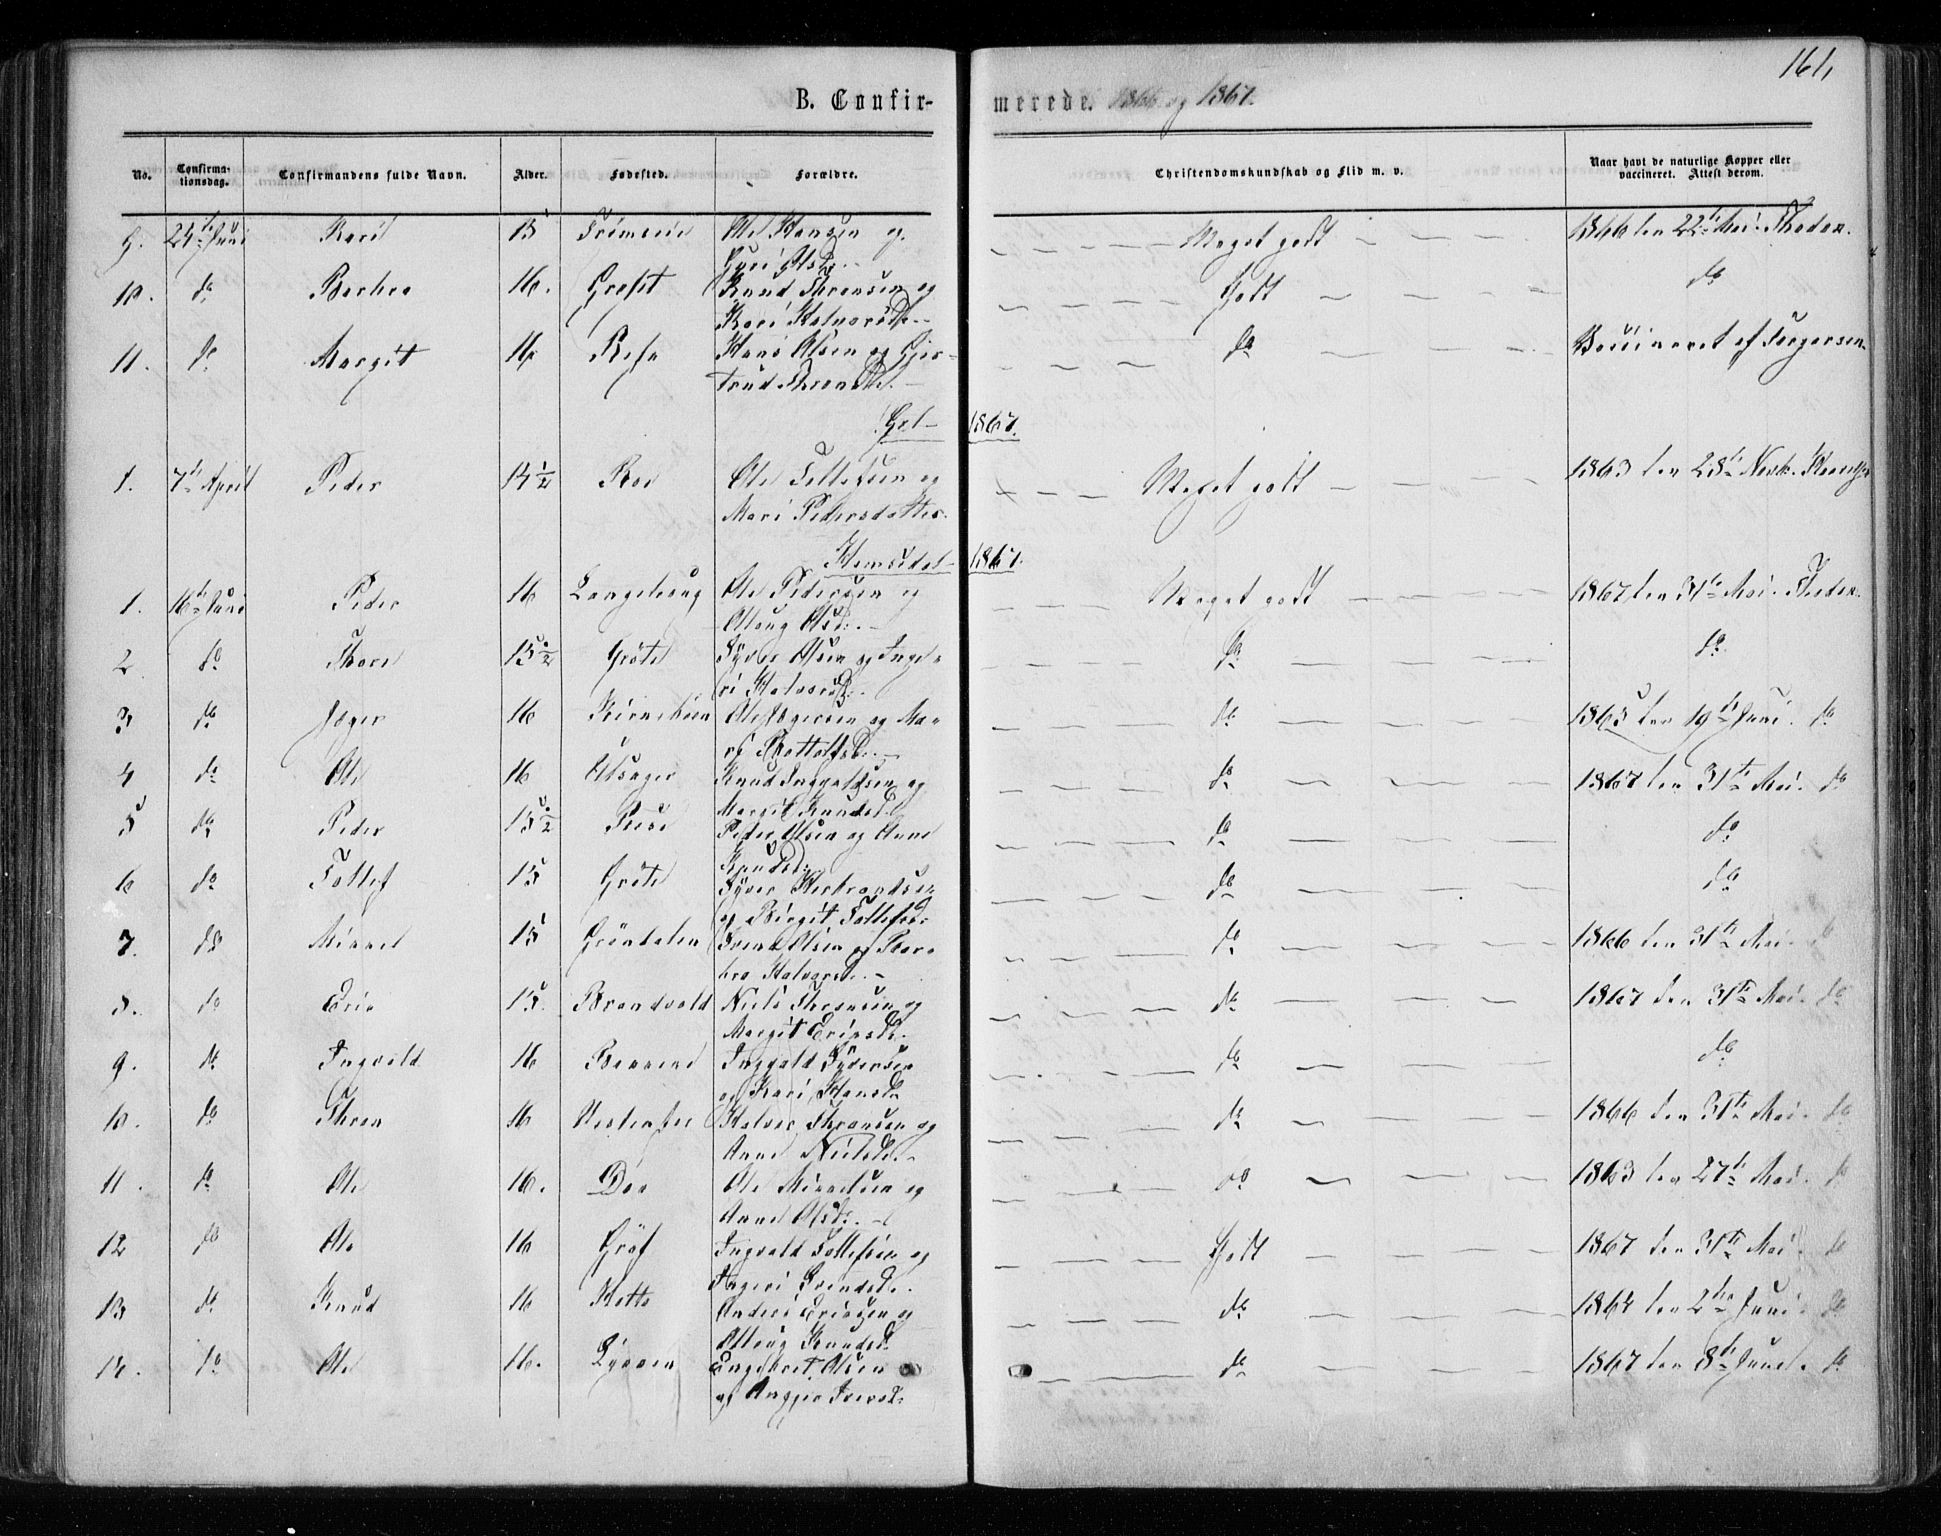 161,
B. Confir-
merede. 1866 og 1867.
No.
Confirma-
tionsdag.
Confirmandens fulde Navn.
Alder.
Fødested.
Forældre.
Christendomskundskab og Flid m. v.
Naar havt de naturlige Kopper eller
vaccineret. Attest derom.
9. 24de Juni Kari 15 Ole Hansen og Meget godt 1866 den 22de Mai.
Guri Olsd.
10. do Barbro 16. Knud Thronsen og Godt do
Kari Halvorsd.
11. do Margit 16 Hans Olsen og Gjer- do Vaccineret af Torgersen
trud Thronsd.
Gol- 1867.
1. 7de April Peder 14½ Roe Ole Tollefsen og Meget godt 1863 den 28de Novb.
Mari Pedersdatter.
Hemsedal- 1867.
1. 16de Juni Peder 16 Langehaug Ole Pedersen og Meget godt 1867 den 31te Mai.
Olsd.
2 do Thore 15½ Grøte Syver Olsen og Inge- do do
ri Halvorsd.
3 do Jæger 16 Ole Jægersen og Ma- do 1865 den 19de Juni. do
ri Bottolfsd.
4 do Ole 16 Ulsager Knud Ingvaldsen og do 1867 den 31te Mai. do
Margit Knudsd.
5 do Peder 15½ Peder Olsen og Anne do do
Knudsd.
6 do Tollef 15 Grøte Syver Herbrandsen do do
og Birgit Tollefsd.
7. do Mikkel 15 Grøndalen Svend Olsen og Bar- do 1866 den 31te Mai. do
bro Halvorsd.
8. do Eric 15. Brandvold Niels Thronsen og do 1867 den 31te Mai. do
Margit Ericsd.
9. do Ingvald 16 Ingvald Syversen do do
og Kari Hansd.
10. do Thron 16 Halvor Thronsen og do 1866 den 31te Mai. do
Anne Nielsd.
11. do Ole 16. Ole Mikkelsen og do 1863 den 27de Mai. do
Anne Olsd.
12 do Ole 16 Grøf Ingvald Tollefsen og Godt 1867 den 31te Mai. do
Ingeri Svendsd.
13 do Knud 16 Anders Ericsen og do 1864 den 2den Juni. do
Knudsd.
14. do Ole 16. Engebret Olsen do 1867 den 8de Juni. do
og